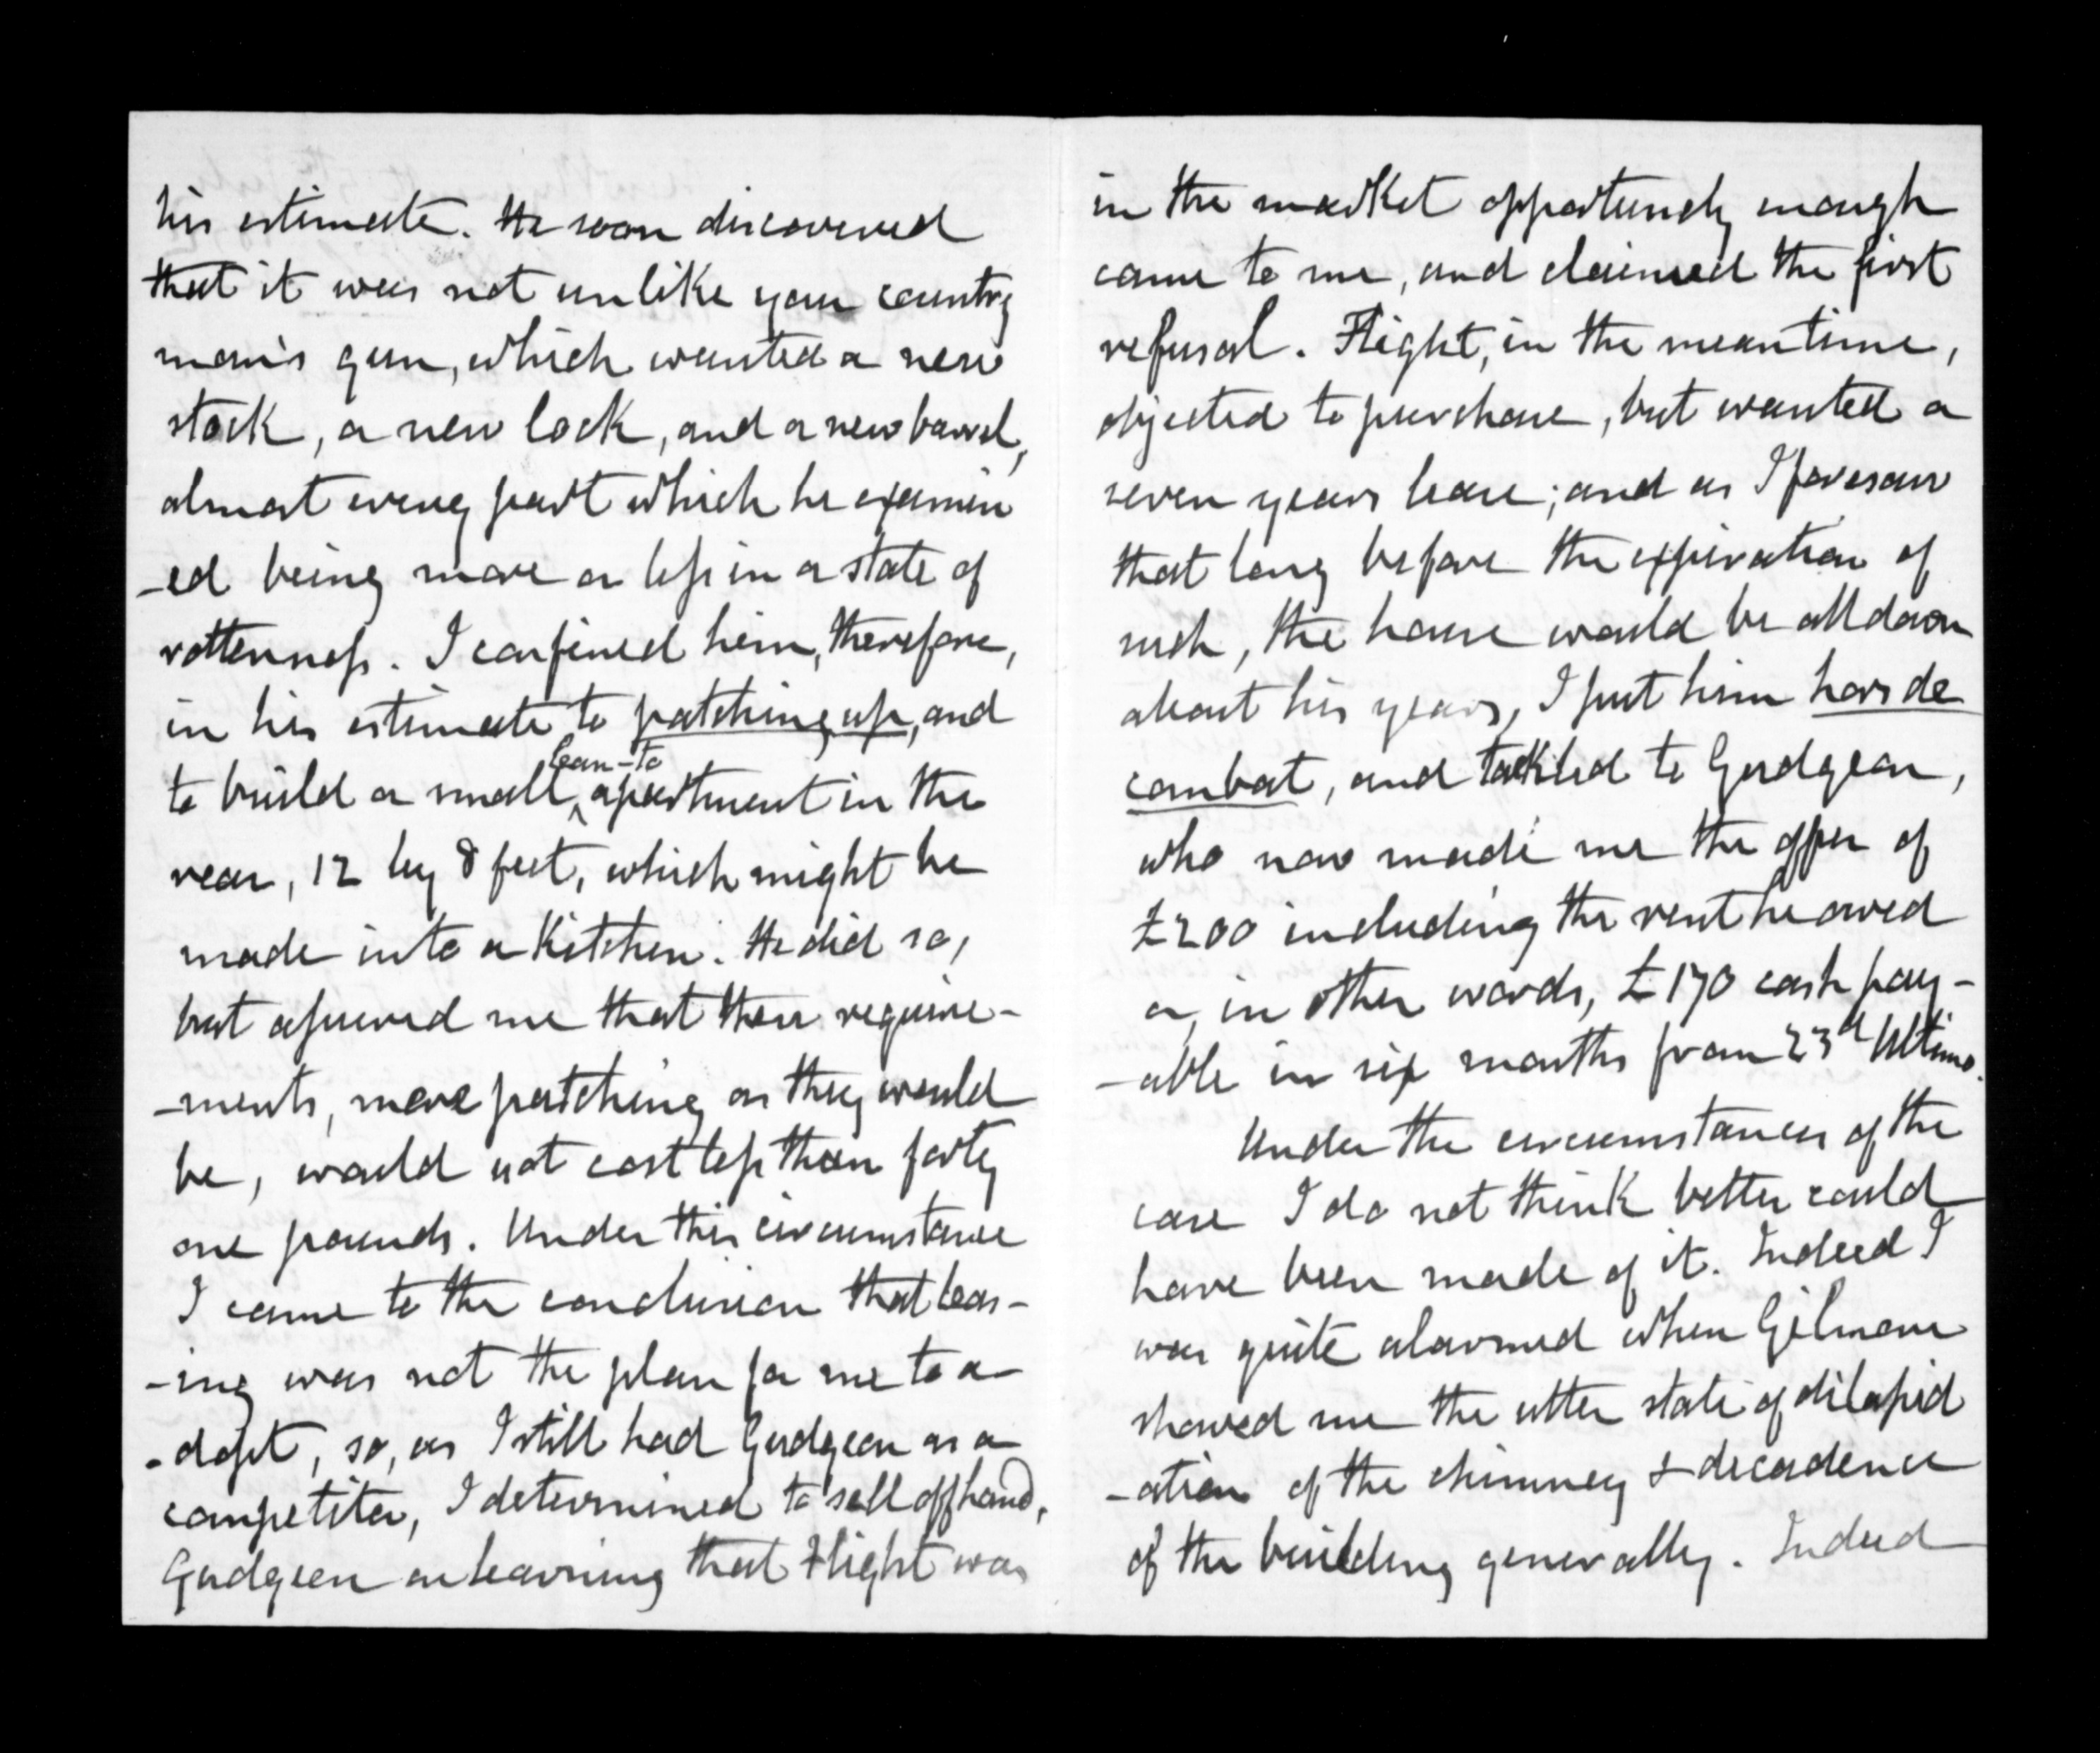 his estimate. He soon discovered
that it was not unlike your country
man's gun, which wanted a new
stock, a new lock, and a new barrel,
almost every part which he examin
-ed being more or less in a state of
rottenness. I confined him, therefore,
in his estimate to patching up, and
to build a small lean-to apartment in the
rear, 12 by 8 feet, which might be
made into a kitchen. He did so,
but assured me that these require-
-ments, mere patching as they would
be, would not cost less than forty
one pounds. Under this circumstance
I came to the conclusion that leas-
-ing was not the plan for me to a-
-dopt, so, as I still had Gudgeon as a
competitor, I determined to sell offhand.
Gudgeon on learning that Flight was
in the market opportunely enough
came to me, and claimed the first
refusal. Flight, in the meantime,
objected to purchase, but wanted a
seven years lease; and as I foresaw
that long before the expiration of
such, the house would be all down
about his years, I put him hors de
combat, and tackled to Gudgeon,
who now made me the offer of
£200 including the rent he owed
or, in other words, £170 cash pay-
-able in six months from 23d Ultimo.
Under the circumstances of the
case I do not think better could
have been made of it. Indeed I
was quite alarmed when Gilmour
showed me the utter state of dilapid
-ation of the chimney & decadence
of the building generally. Indeed